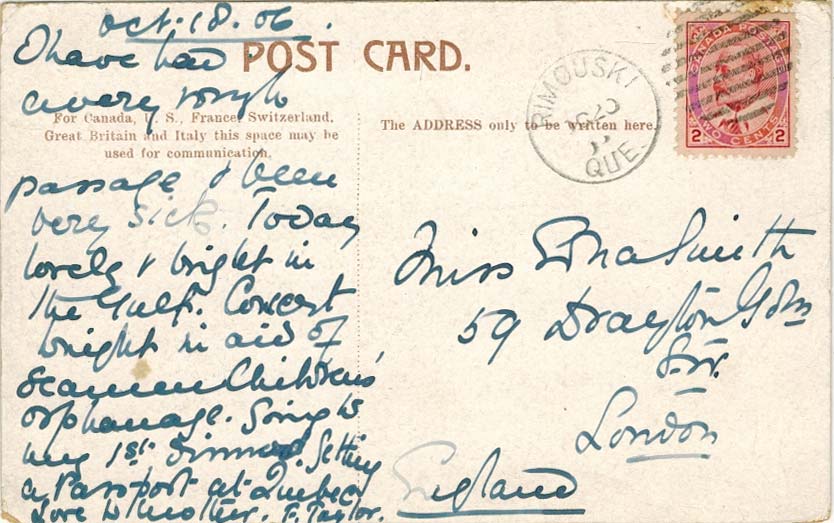 Oct. 18. 06.
I have had
a very rough
passage & been
very sick. Today
lovely & bright in
the Gulf. Concert
tonight in aid of
Seamen Children's
orphanage. Going to
my 1st dinner. Getting
a Passport at Quebec
Love to Mother. F. Taylor.
POST CARD.
For Canada, U. S., France, Switzerland,
Great Britain and Italy this space may be
used for communication.
The ADDRESS only to be written here.
RIMOUSKI
20
QUE.
CANADA POSTAGE
2 TWO CENTS 2
Miss Edna Smith
59 Drayton Gdns
S.W.
London
England